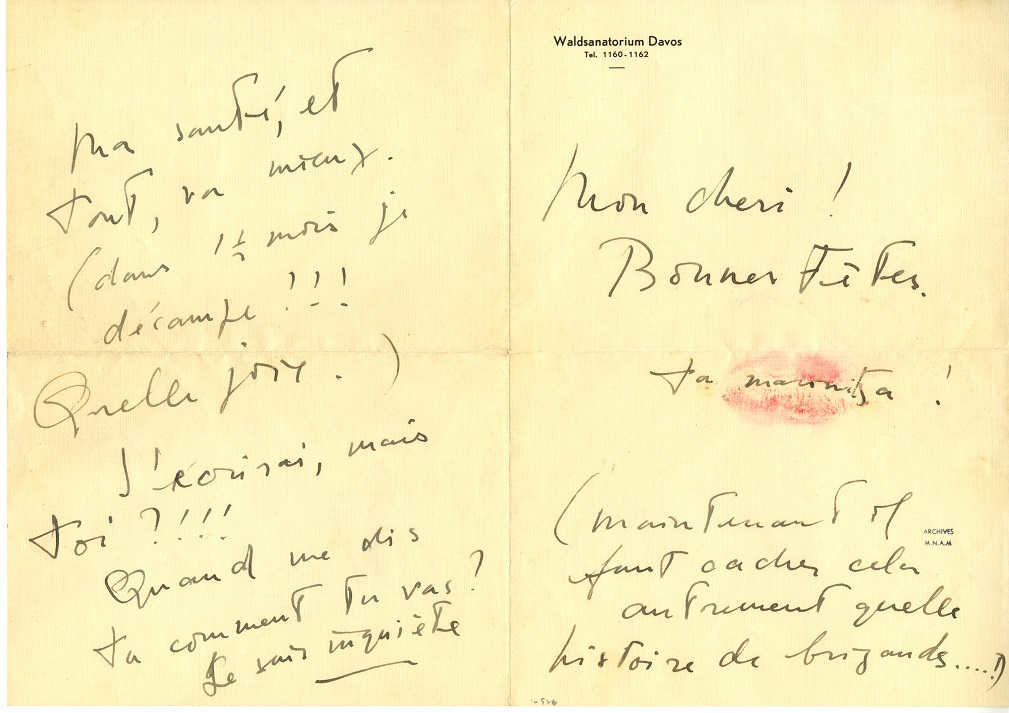 Waldsanatorium Davos
Tel. 1160-1162
Mon cheri !
Bonnes Fêtes.
ta !
(maintenant il
faut cacher cela
autrement quelle
histoire de brigands.....!)
ARCHIVES
M.N.A.M
Ma santé, et
tout, va mieux.
(dans 1½ mois je
décampe !!!
Quelle joie. )
J'écrirai, mais
toi ?!!!
Quand me dis
tu comment tu vas ?
Je suis inquiète